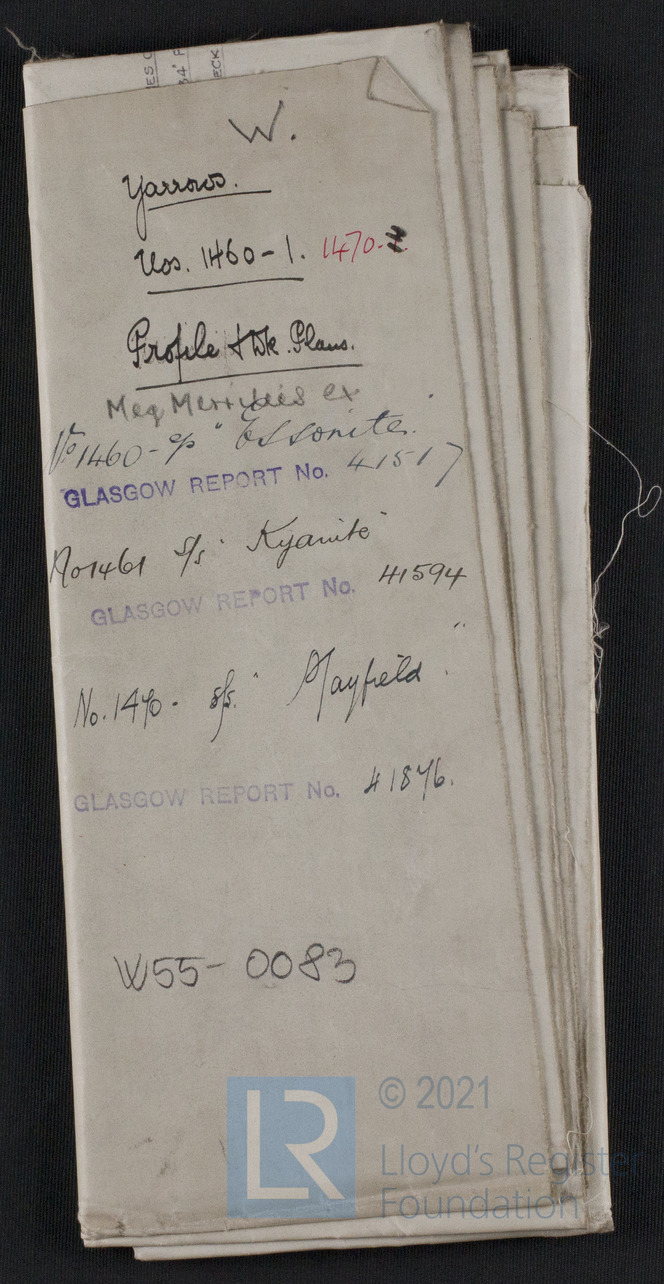 ES C
34' F
ECK
W.
Yarrows.
Nos. 1460-1. 1470-
Profile & Dk. Plans.
Meg Merrilies ex
No 1460 - s/s "Essonite."
GLASGOW REPORT No. 41517
No 1461 s/s "Kyanite"
GLASGOW REPORT No. 41594
No. 1470 - s/s. "Mayfield."
GLASGOW REPORT No. 41876.
W55-0083
LR
© 2021
Lloyd's Register
Foundation